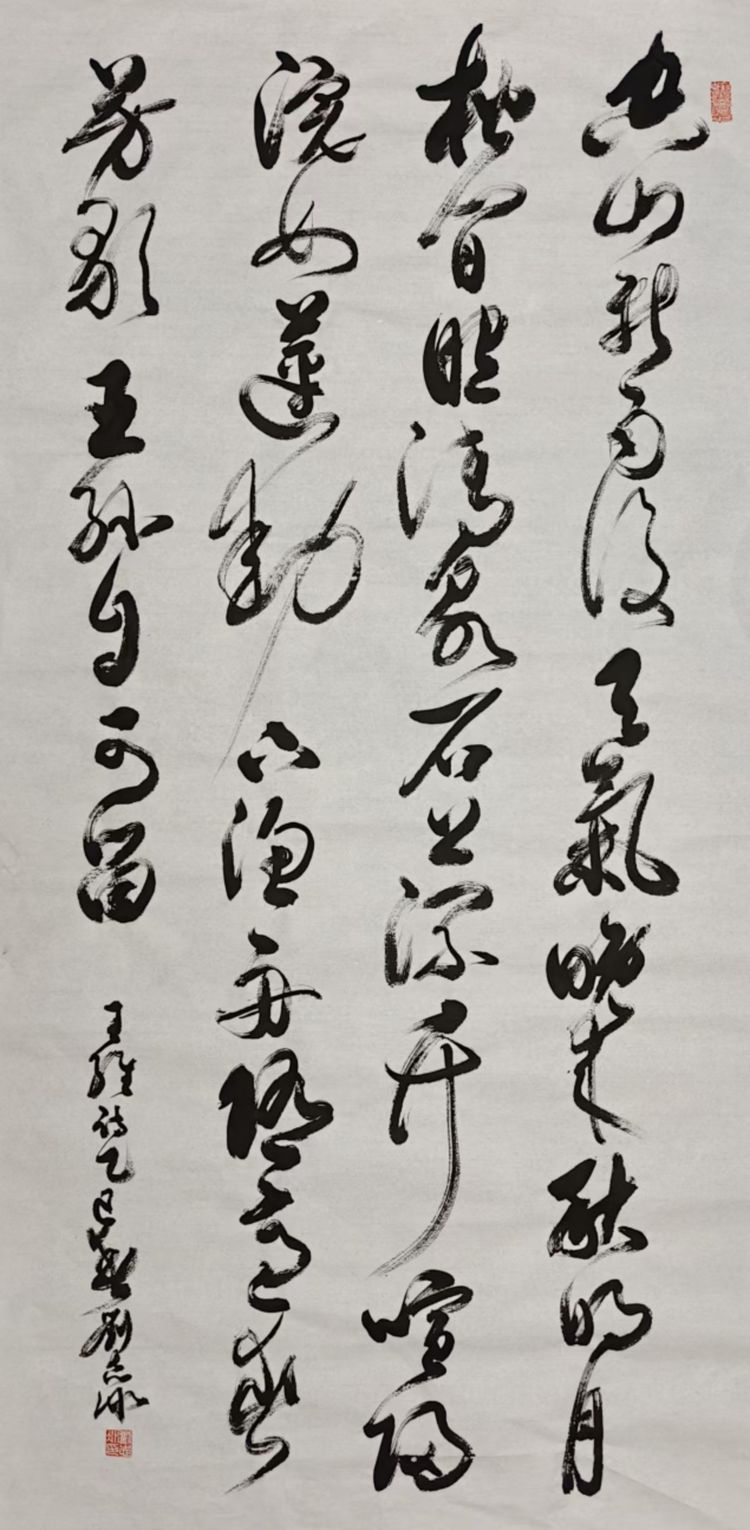 空山新雨後天氣晚来秋明月
松間照清泉石上流竹喧歸
浣女蓮動下漁舟隨意春
芳歇王孫自可留
王維詩乙巳劉